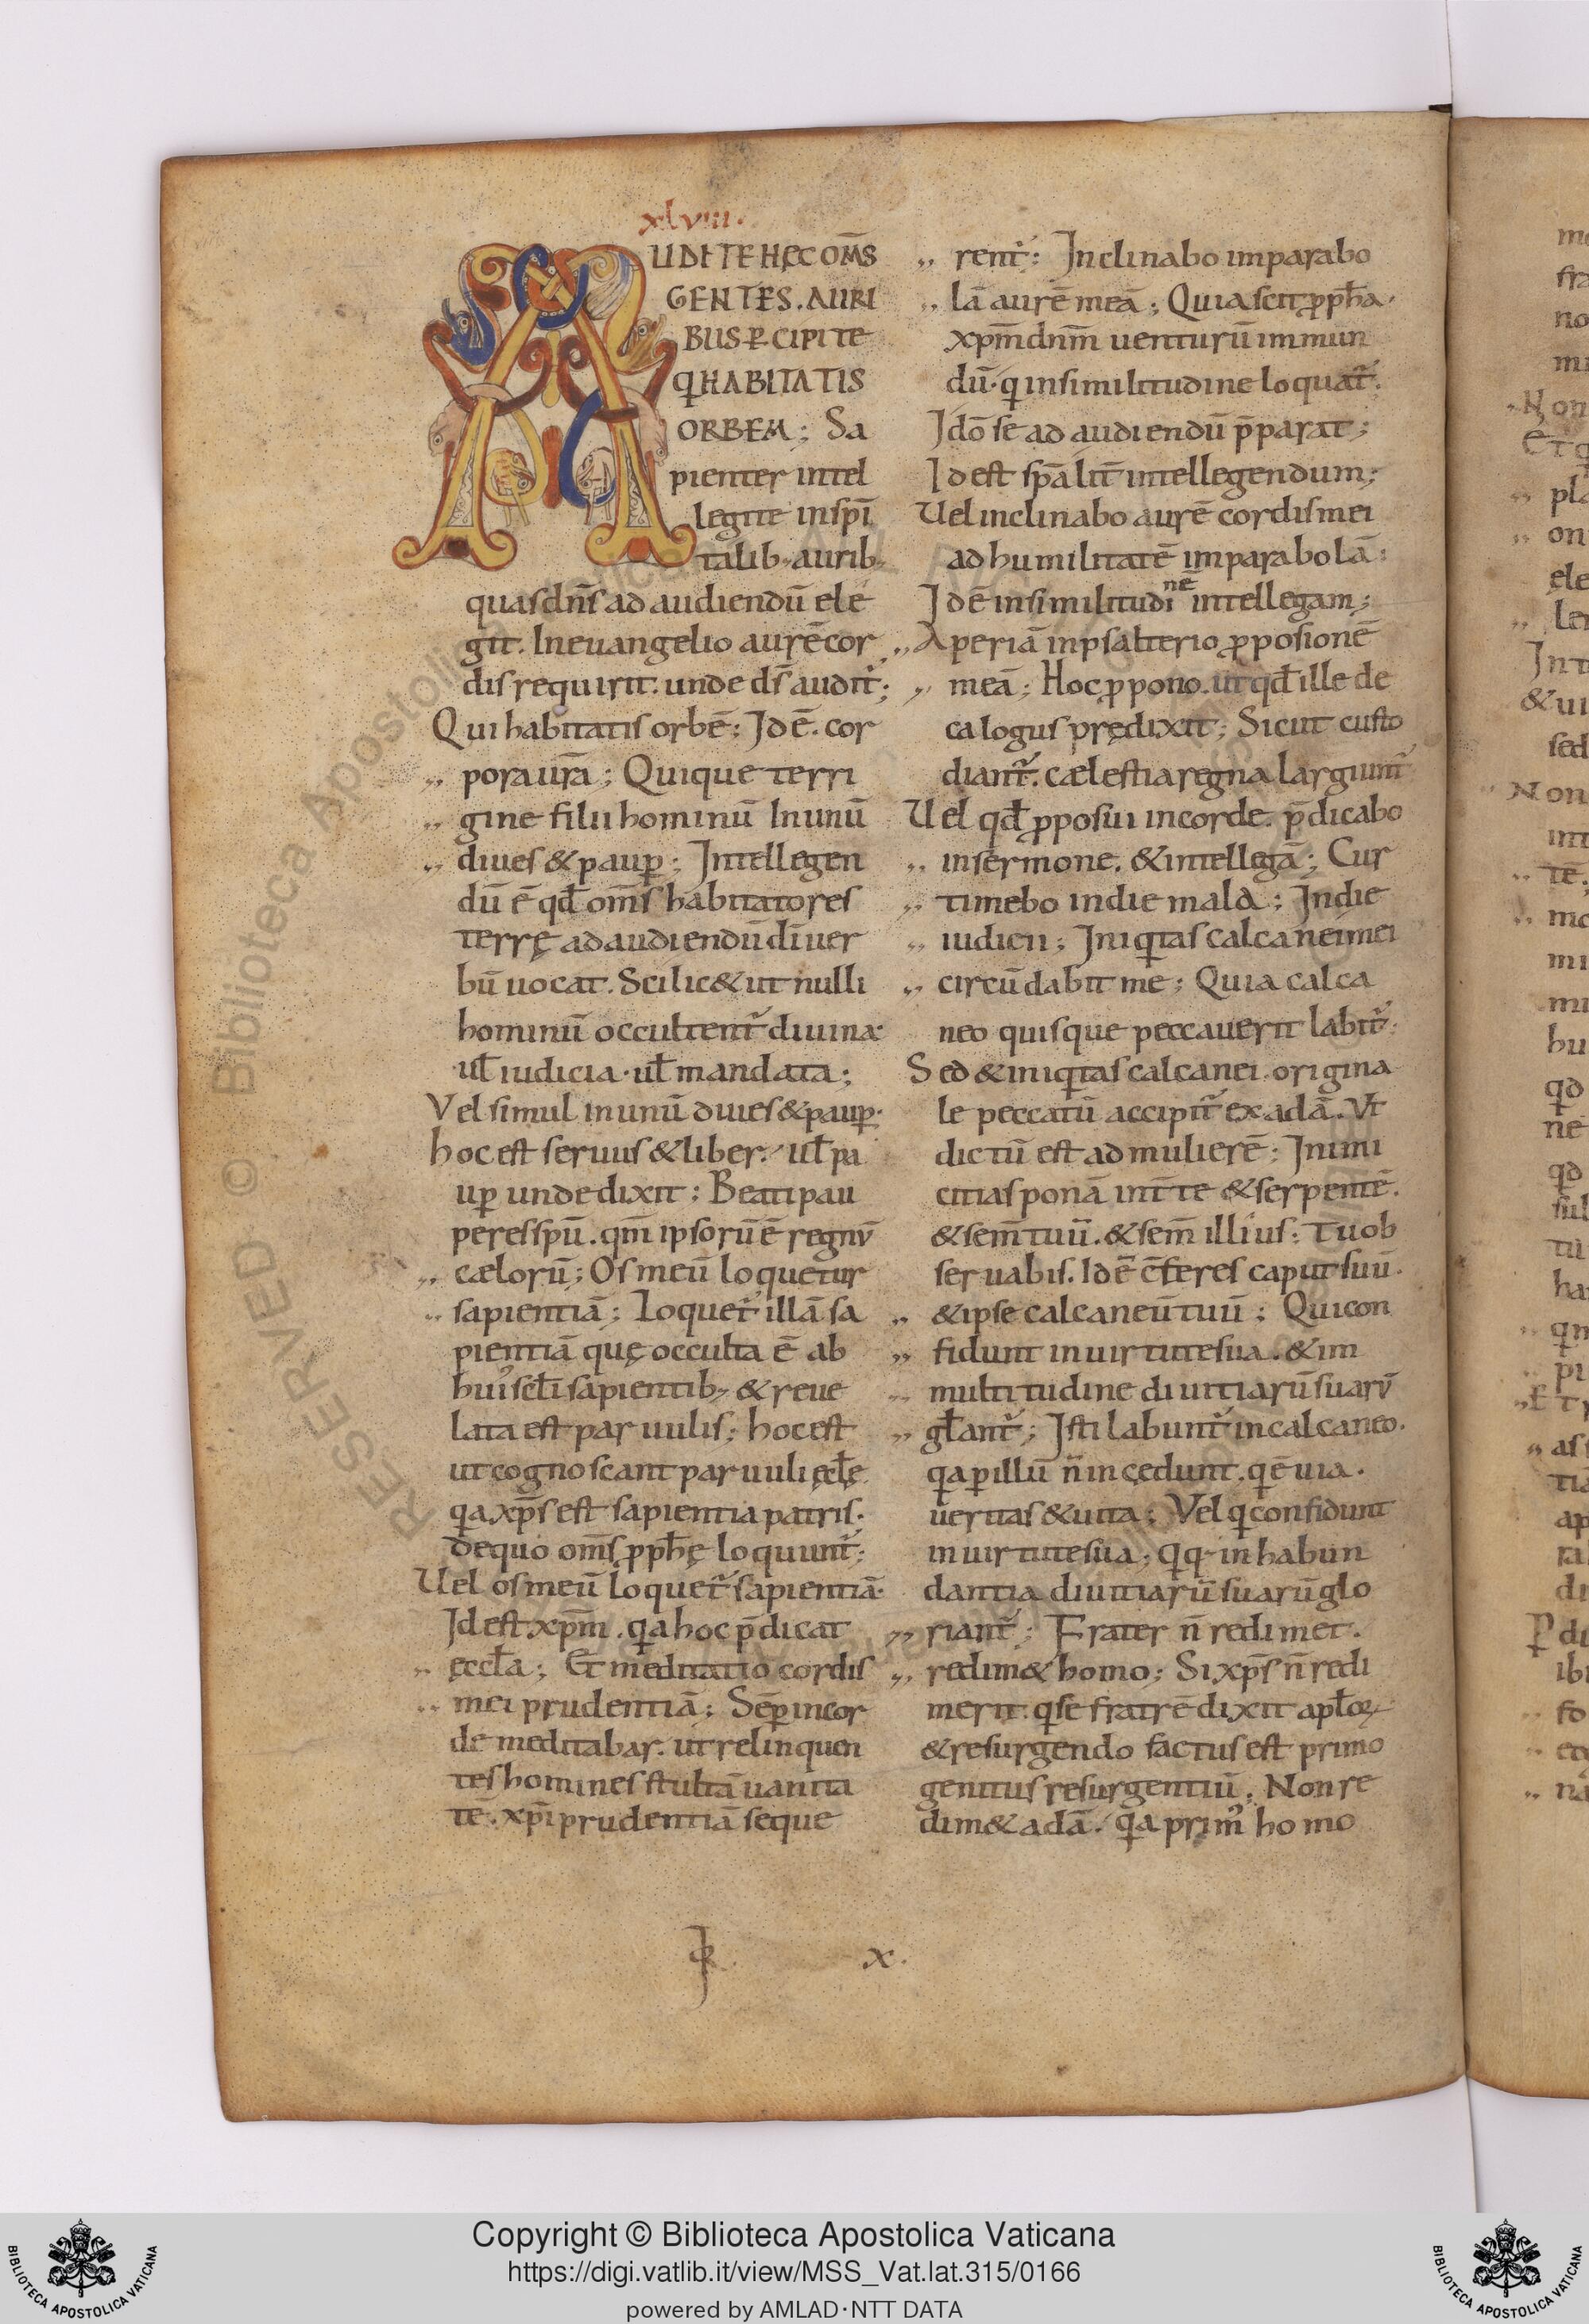 xlviii.
AUDITE HĘC OM̅S
GENTES. AURI
BUS P̱CIPITE
Q̇ HABITATIS
ORBEM; Sa
pienter intel
legite in sp̅i
talib; aurib;
quas dn̅s ad audiendū ele
git. In euangelio aurē cor
dis requirit. unde dr̅ audit᷑;
Qui habitatis orbē; Id ē. cor
,, pora ur̅a; Quique terri
,, gine filii hominū In unū
,, diues & paup̱; Intellegen
dū ē qd̅ om̅s habitatores
terrę ad audiendū di̅ uer
bū uocat. Scilic& ut nulli
hominū occultent᷑ diuina.
ul̅ iudicia. ul̅ mandata;
Vel simul in unū diues & paup̱.
hoc est seruus & liber. ul̅ pa
up̱ unde dixit; Beati pau
peres spū. qm̅ ipsorū ē regnū
,, cælorū; Os meū loquetur
,, sapientiā; Loquet᷑ illā sa
pientiā quę occulta ē ab
hui᷒ scl̅i sapientib; & reue
lata est paruulis; hoc est
ut cognoscant paruuli ęcl̅ę
qa xp̅s est sapientia patris.
de quo om̅s ꝓph̅ę loquunt᷑;
Uel os meū loquet᷑ sapientiā.
Id est xp̅m. qa hoc p̅dicat
,, ęccl̅a; Et meditatio cordis
,, mei prudentiā; Sēp̱ in cor
de meditabar. ut relinquen
tes homines stultā uanita
tē. xp̅i prudentiā seque
,, rent᷑; Inclinabo in parabo
,, lā aurē meā; Quia scit ꝓph̅a
xp̅m dn̅m uenturū in mun
dū. q in similitudine loquat᷑.
Idō se ad audiendū p̅parat;
Id est sp̅alit̅ intellegendum;
Uel inclinabo aurē cordis mei
ad humilitatē in parabolā;
Id ē in similitudinē intellegam;
,, Aperiā in psalterio ꝓposionē
,, meā; Hoc ꝓpono. ut qd̅ ille de
calogus prędixit; Sicut custo
diant᷑. cælestia regna largiunt᷑
Uel qd̅ ꝓposui in corde. p̅dicabo
,, in sermone. & intellegā; Cur
,, timebo in die mala; In die
,, iudicii; Iniqitas calcanei mei
,, circūdabit me; Quia calca
neo quisque peccauerit labit᷑;
Sed & iniqitas calcanei. origina
le peccatū accipit᷑ ex adā. Ut
dictū est ad mulierē; Inimi
citias ponā int̅ te & serpentē.
& sem̅ tuū. & sem̅ illius; Tu ob
seruabis. Id ē c̅feres caput suū.
,, & ipse calcaneū tuū; Qui con
,, fidunt in uirtute sua. & in
,, multitudine diuitiarū suarū
,, gl̅ant᷑; Isti labunt᷑ in calcaneo.
qa p̱ illū n̅ incedunt. q ē uia.
ueritas & uita; Vel q confidunt
in uirtute sua; Qq; in habun
dantia diuitiarū suarū glo
,, riant᷑; Frater n̅ redimet.
,, redim& homo; Si xp̅s n̅ redi
merit. q se fratrē dixit apl̅oꝝ
& resurgendo factus est primo
genitus resurgentiū; Non re
dim& adā. qa prim᷒ homo
x.
Copyright © Biblioteca Apostolica Vaticana
https://digi.vatlib.it/view/MSS_Vat.lat.315/0166
powered by AMLAD·NTT DATA
BIBLIOTECA APOSTOLICA VATICANA
BIBLIOTECA APOSTOLICA VATICANA